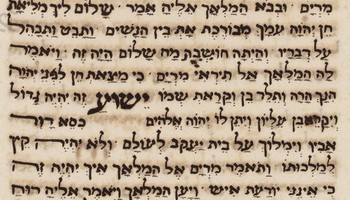 מרים · ובבא המלאך אליה אמר · שלום ליך מליאת
חן יהוה עמך מבורכת את בין הנשים · ותבט ותבהל
על דבריו והיתה חושבת מה שלום היה זה · ויאמר
לה המלאך אל תיראי מרים · כי מיצאת חן לפני יהוה
הנך הרה ותלד בן וקראת שמו ישוע זה יהיה גדול
ויקרא בן עליון ויתן לו יהוה אלהים כסא דוד
אביו וימלוך על בית יעקב לעולם · ולא יהיה קץ
למלכותו ותאמר מרים אל המלאך איך יהיה זה
כי אינני יודעת איש · ויען המלאך ויאמר אליה רוח